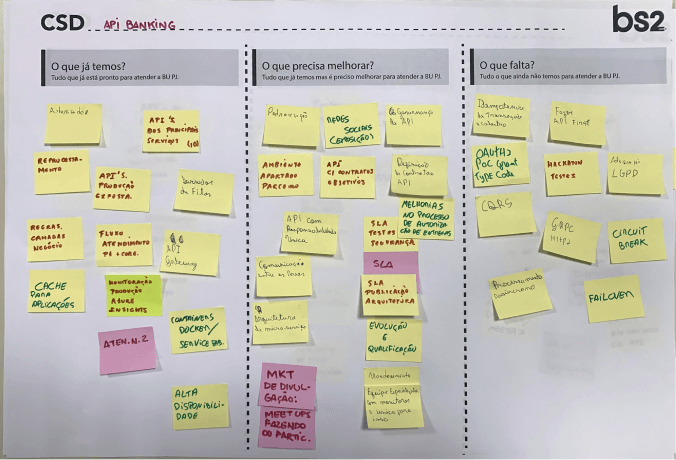 CSD API BANKING
bs2
O que já temos?
Tudo que já está pronto para atender a BU PJ.
API'S
DOS PRINCIPAIS
SERVIÇOS (10)
REPROCESSA-
MENTO
API'S.
PRODUÇÃO
EXPOSTA.
Servidor
de Filas
REGRAS,
CAMADAS
NEGÓCIO
FLUXO
ATENDIMENTO
API
Gateway
CACHE
PARA
APLICAÇÕES
MONITORAÇÃO
PRODUÇÃO
AZURE
INSIGHTS
CONTAINERS
DOCKER/
SERVICE FAB.
ATEN. N. 2
ALTA
DISPONIBILI-
DADE
O que precisa melhorar?
Tudo que já temos mas é preciso melhorar para atender a BU PJ.
REDES
SOCIAIS
(EXPOSIÇÃO)
Governança
de API
AMBIENTE
APARTADO
PARCEIRO
APS
C/ CONTRATOS
OBJETIVOS
Definição
de Contratos
API
MELHORIAS
NO PROCESSO
DE AUTORIZA
ÇÃO DE EXTERNAS
API com
Responsabilidade
Única
SLA
TESTES
SEGURANÇA
Comunicação
entre as áreas
SLA
SLA
PUBLICAÇÃO
ARQUITETURA
Arquitetura
de micro serviço
EVOLUÇÃO
E
QUALIFICAÇÃO
MKT
DE DIVUL-
GAÇÃO:
MEET UPS
FAZENDO
OU PARTIC.
Monitoramento
O que falta?
Tudo o que ainda não temos para atender a BU PJ.
Idempotencia
de Transações
Fazer
API First
OAUTH2
PoC Grant
Type Code
HACKATON
TESTES
LGPD
CQRS
GRPC
HTTP2
CIRCUIT
BREAK
Processamento
Assíncrono
FAILOVER